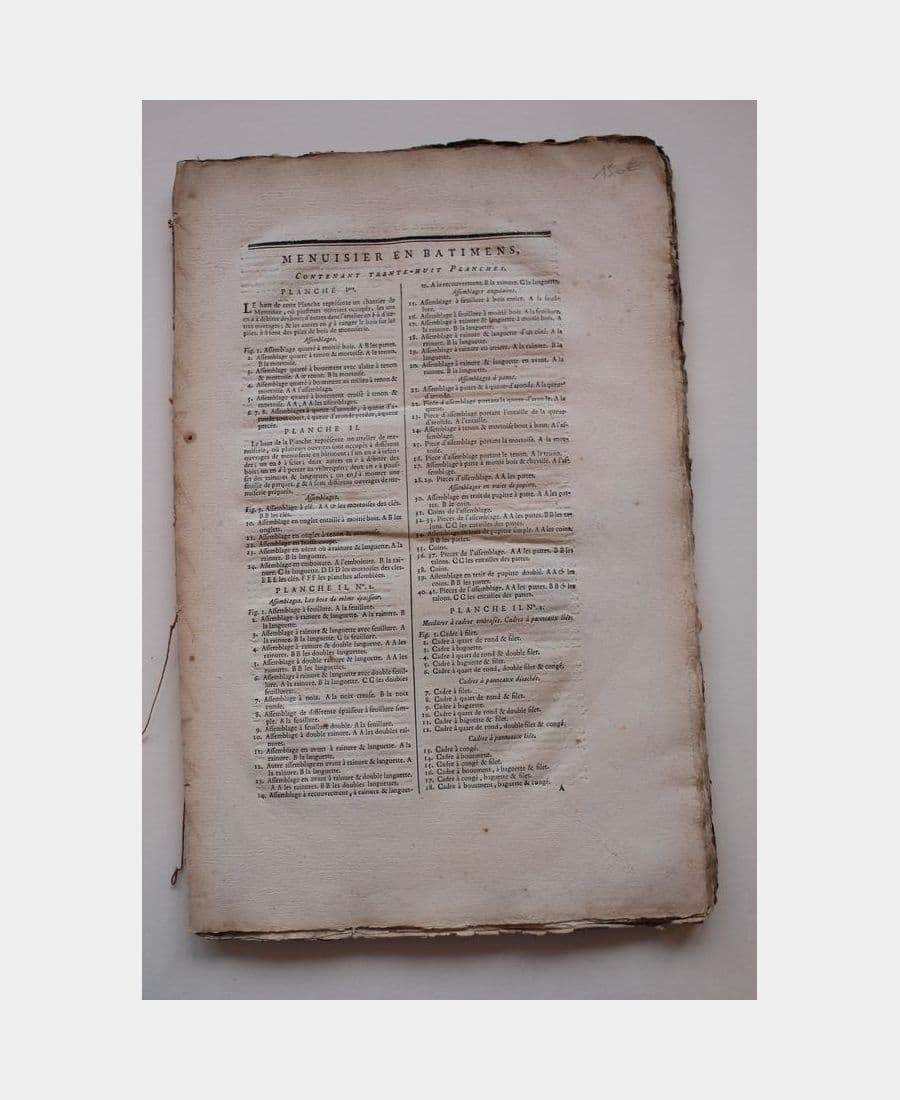 150€
MENUISIER EN BATIMENS,
CONTENANT TRENTE-HUIT PLANCHES.
PLANCHE Iere.
LE haut de cette Planche représente un chantier de
Menuisier, où plusieurs ouvriers sont occupés, les uns
en a à débiter des bois; d'autres dans l'atelier en b à d'au-
tres ouvrages; & les autres en g à ranger le bois sur les
piles. h h sont des piles de bois de menuiserie.
Assemblages.
Fig. 1. Assemblage quarré à moitié bois. A B les pattes.
2. Assemblage quarré à tenon & mortoise. A le tenon.
B la mortoise.
3. Assemblage quarré à bouement avec à tenon
& mortoise. A le tenon. B la mortoise.
4. Assemblage quarré à bouement au milieu à tenon &
mortoise. A A l'assemblage.
5. Assemblage quarré à bouement croisé à tenon &
mortoise. A A, A A les assemblages.
6. 7. 8. Assemblages à queue d'aronde, à queue d'a-
ronde à queue d'aronde perdue, à queue
percée.
PLANCHE II.
Le haut de la Planche représente un atelier de me-
nuiserie, où plusieurs ouvriers sont occupés à différens
ouvrages de menuiserie en bâtiment; l'un en a à refen-
dre; un en b à scier; deux autres en c à débiter des
bois; un en d à percer au vilbrequin; deux en e à pous-
ser des rainures & languettes; un en f à monter une
feuille de parquet. g & h sont différens ouvrages de me-
nuiserie préparés.
Assemblages.
Fig. 9. Assemblage à clé. A A & les mortoises des clés.
B B les clés.
10. Assemblage en onglet entaillé à moitié bois. A B les
onglets.
11. Assemblage en onglet à tenon & mortoise.
12. Assemblage en fausse coupe.
13. Assemblage en adent où à rainure & languette. A la
rainure. B la languette.
14. Assemblage en emboiture. A l'emboiture. B la rai-
nure. C la languette. D D D les mortoises des clés.
E E E les clés. F F F les planches assemblées.
PLANCHE II, N°. 1.
Assemblages. Les bois de même épaisseur.
Fig. 1. Assemblage à feuillure. A la feuillure.
2. Assemblage à rainure & languette. A la rainure. B
la languette.
3. Assemblage à rainure & languette avec feuillure. A
la rainure. B la languette. C la feuillure.
4. Assemblage à rainure & double languette. A A les
rainures. B B les doubles languettes.
5. Assemblage à double rainure & languette. A A les
rainures. B B les languettes.
6. Assemblage à rainure & languette avec double feuil-
lure. A la rainure. B la languette. C C les doubles
feuillures.
7. Assemblage à noix. A la noix creuse. B la noix
ronde.
8. Assemblage de différente épaisseur à feuillure sim-
ple. A la feuillure.
9. Assemblage à feuillure double. A la feuillure.
10. Assemblage à double rainure. A A les doubles rai-
nures.
11. Assemblage en avant à rainure & languette. A la
rainure. B la languette.
12. Autre assemblage en avant à rainure & languette. A
la rainure. B la languette.
13. Assemblage à rainure & double languette.
A A les rainures. B B les doubles languettes.
14. Assemblage à recouvrement, à rainure & languet-
te. A le recouvrement. B la rainure. C la languette.
Assemblages angulaires.
15. Assemblage à feuillure à bois entier. A la feuil-
lure.
16. Assemblage à feuillure à moitié bois. A la feuillure.
17. Assemblage à rainure & languette à moitié bois. A
la rainure. B la languette.
18. Assemblage à rainure & languette d'un côté. A la
rainure. B la languette.
19. Assemblage à rainure en arriere. A la rainure. B la
languette.
20. Assemblage à rainure & languette en avant. A la
rainure. B la languette.
Assemblages à pattes.
21. Assemblage à pattes & à queue-d'aronde. A la queue-
d'aronde.
22. Piece d'assemblage portant la queue-d'aronde. A la
queue.
23. Piece d'assemblage portant l'entaille de la queue-
d'aronde. A l'entaille.
24. Assemblage à tenon & mortoise bout à bout. A l'as-
semblage.
25. Piece d'assemblage portant la mortoise. A la mor-
toise.
26. Piece d'assemblage portant le tenon. A le tenon.
27. Assemblage à patte à moitié bois & chevillé. A l'as-
semblage.
28. 29. Pieces de l'assemblage. A A les pattes.
Assemblages en traits de pupitre.
30. Assemblage en trait de pupitre à patte. A A les pat-
tes. B le coin.
31. Coins de l'assemblage.
32. 33. Pieces de l'assemblage. A A les pattes. B B les ta-
lons. C C les entailles des pattes.
34. Assemblage en trait de pupitre simple. A A les coins.
B B les pattes.
35. Coins.
36. 37. Pieces de l'assemblage. A A les pattes. B B les
talons. C C les entailles des pattes.
38. Coins.
39. Assemblage en trait de pupitre double. A A & les
coins. B B les pattes.
40. 41. Pieces de l'assemblage. A A les pattes. B B & les
talons. C C les entailles des pattes.
PLANCHE II, N°. 2.
Moulures à cadre embrasés. Cadres à panneaux liés.
Fig. 1. Cadre à filet.
2. Cadre à quart de rond & filet.
3. Cadre à baguette.
4. Cadre à quart de rond & double filet.
5. Cadre à baguette & filet.
6. Cadre à quart de rond, double filet & congé.
Cadres à panneaux détachés.
7. Cadre à filet.
8. Cadre à quart de rond & filet.
9. Cadre à baguette.
10. Cadre à quart de rond & double filet.
11. Cadre à baguette & filet.
12. Cadre à quart de rond, double filet & congé.
Cadre à panneaux liés.
13. Cadre à congé.
14. Cadre à bouement.
15. Cadre à congé & filet.
16. Cadre à bouement, à baguette & filet.
17. Cadre à congé, baguette & filet.
18. Cadre à bouement, baguette & congé.
A